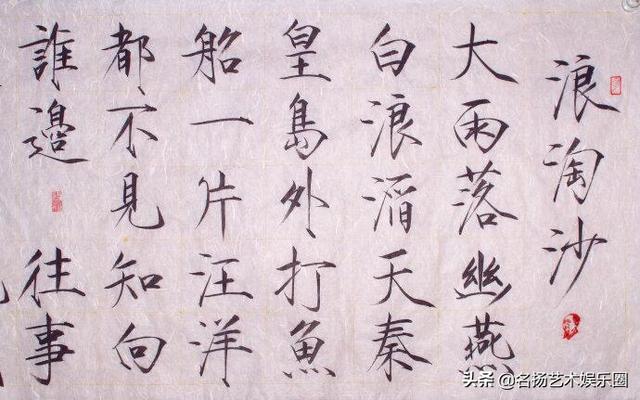 浪淘沙
大雨落幽燕
白浪滔天秦
皇島外打魚
船一片汪洋
都不見知向
誰邊 往事
头条 @名扬艺术娱乐圈